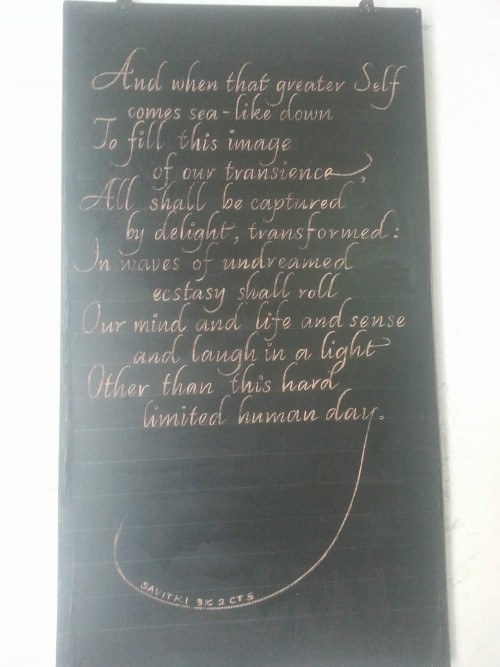 And when that greater Self
comes sea-like down
To fill this image
of our transience,
All shall be captured
by delight, transformed:
In waves of undreamed
ecstasy shall roll
Our mind and life and sense
and laugh in a light
Other than this hard
limited human day.
SAVITRI BK 2 CT 5